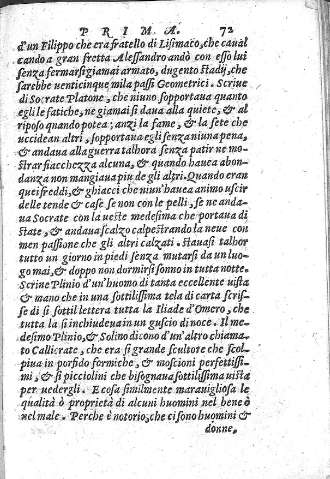 PRIMA. 72
d'un Filippo che era fratello di Lisimaco, che caual
cando a gran fretta Alessandro andò con esso lui
senza fermarsi giamai armato, dugento stadij, che
sarebbe uenticinque mila passi Geometrici. Scriue
di Socrate Platone, che niuno sopportaua quanto
egli le fatiche, ne giamai si daua alla quiete, & al
riposo quando potea; anzi la fame, & la sete che
uccidean altri, sopportaua egli senza niuna pena,
& andaua alla guerra talhora senza patir ne mo=
strar fiacchezza alcuna, & quando hauea abon-
danza non mangiaua piu de gli altri. Quando eran
quei freddi, & ghiacci che niun'hauea animo uscir
delle tende & case se non con le pelli, se ne anda-
ua Socrate con la ueste medesima che portaua di
state, & andaua scalzo calpestrando la neue con
men passione che gli altri calzati. Stauasi talhor
tutto un giorno in piedi senza mutarsi da un luo-
go mai, & doppo non dormirsi sonno in tutta notte.
Scriue Plinio d'un'huomo di tanta eccellente uista
& mano che in una sottilissima tela di carta scris-
se di sì sottil lettera tutta la Iliade d'Omero, che
tutta la si inchiudeua in un guscio di noce. Il me-
desimo Plinio, & Solino dicono d'un'altro chiama-
to Callicrate, che era si grande scultore che scol-
piua in porfido formiche, & moscioni perfettissi-
mi, & si picciolini che bisognaua sottilissima uista
per uedergli. E cosa similmente marauigliosa le
qualità ò proprietà di alcuni huomini nel bene ò
nel male. Perche è notorio, che ci sono huomini &
donne,